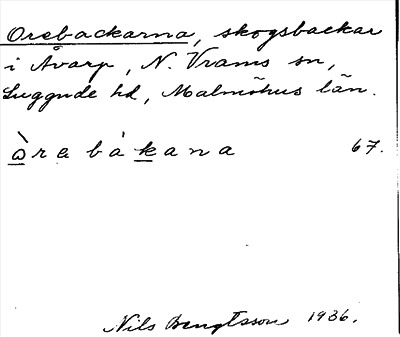 Orebackarna, skogsbackar
i Åvarp, N. Vrams sn,
Luggude hd, Malmöhus län.
òrabàkana 67.
Nils Bengtsson 1936.